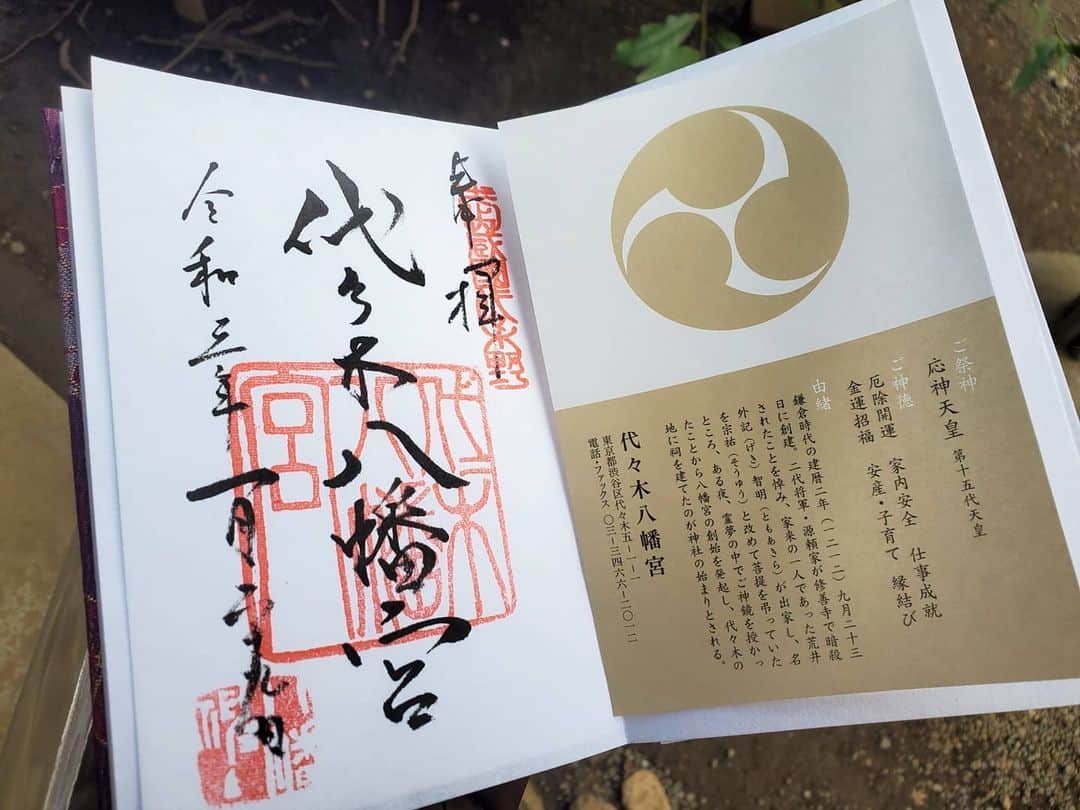 ご祭神
応神天皇 第十五代天皇
ご神徳
厄除開運 家内安全 仕事成就
金運招福 安産・子育て 縁結び
由緒
鎌倉時代の建暦二年(一二一二)九月二十三
日に創建。二代将軍・源頼家が修善寺で暗殺
されたことを悼み、家来の一人であった荒井
外記(げき)智明(ともあきら)が出家し、名
を宗祐(そうゆう)と改めて菩提を弔っていた
ところ、ある夜、霊夢の中でご神鏡を授かっ
たことから八幡宮の創始を発起し、代々木の
地に祠を建てたのが神社の始まりとされる。
代々木八幡宮
東京都渋谷区代々木五-一-一
電話・ファックス 〇三-三四六六-二〇一二
奉拝
代々木八幡宮
令和三年一月二十九日